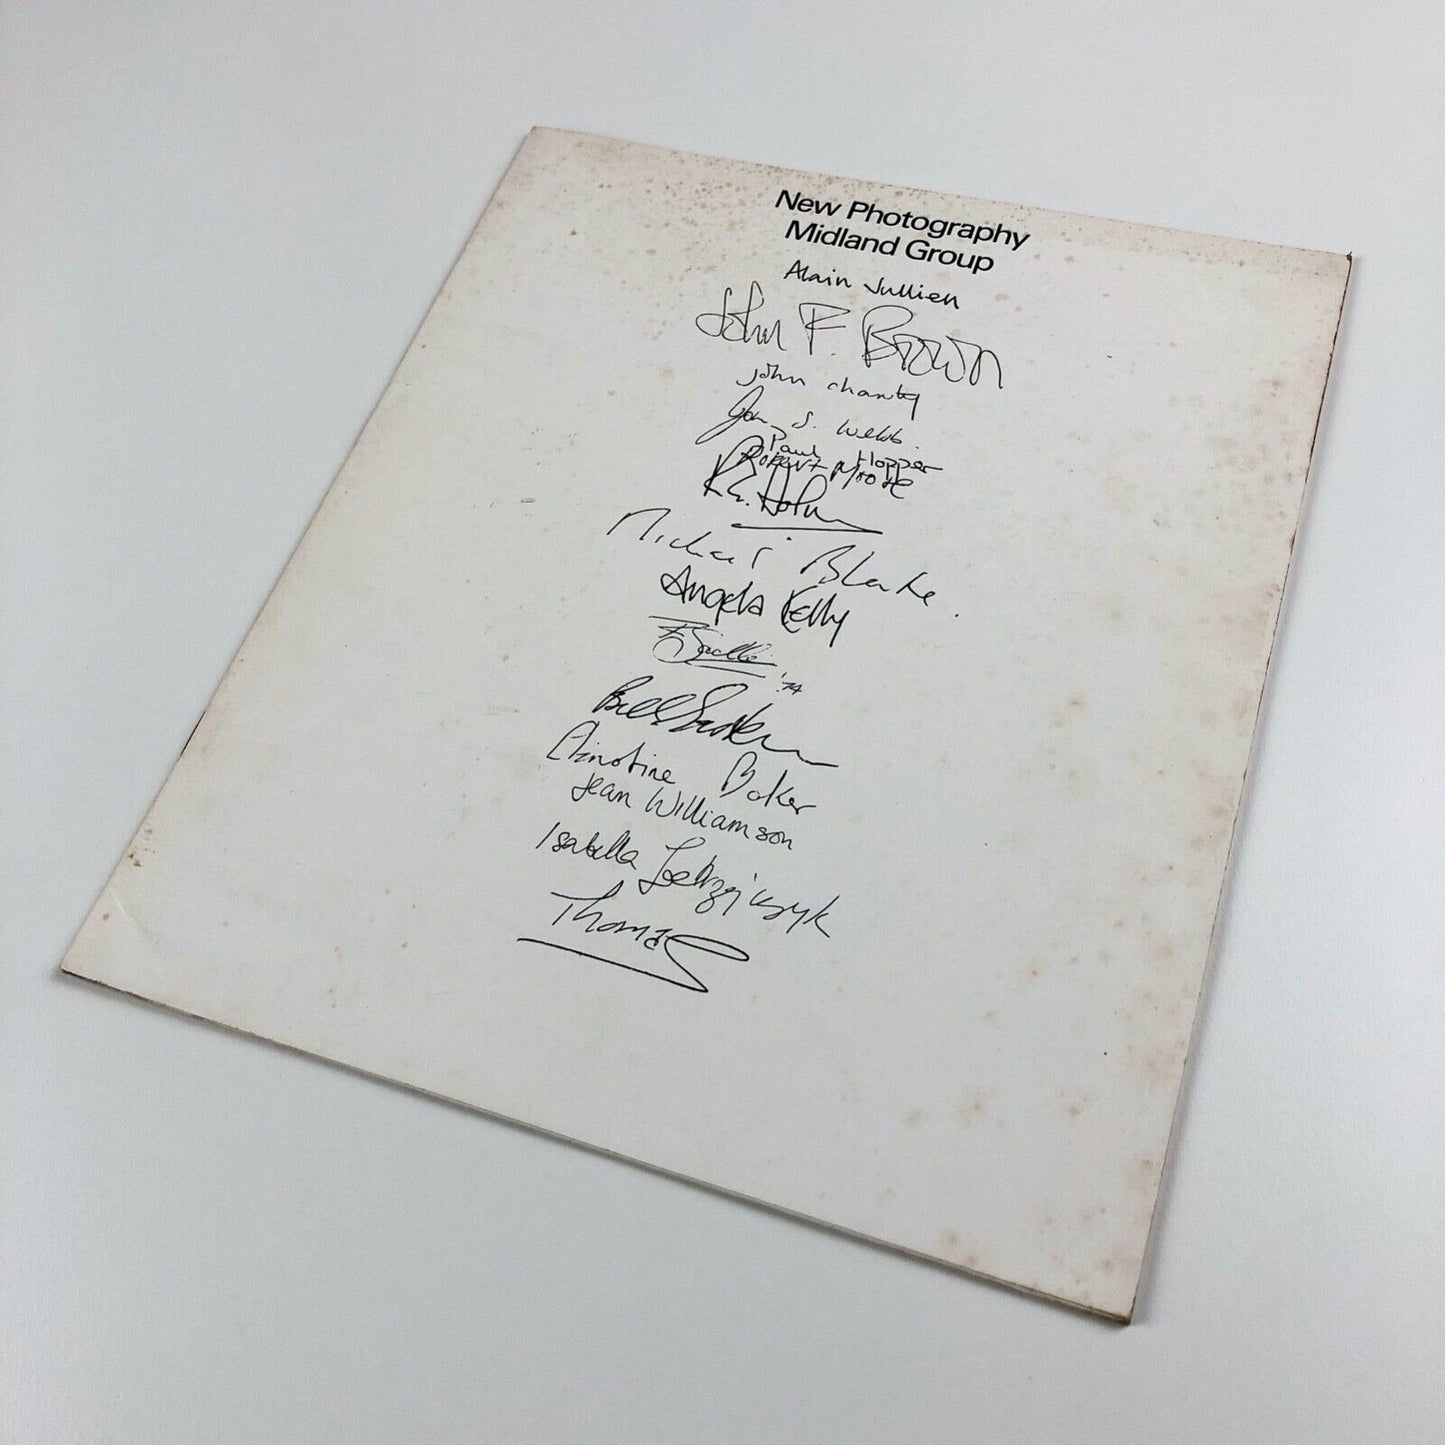 New Photography
Midland Group
Alain Jullien
John F. Brown
john chantry
John S. Webb.
Paul Hopper
Robert Moore
Michael Blake.
Angela Kelly
'74
Bill
Christine Baker
Jean Williamson
Isabella Jedrzejczyk
Thomas